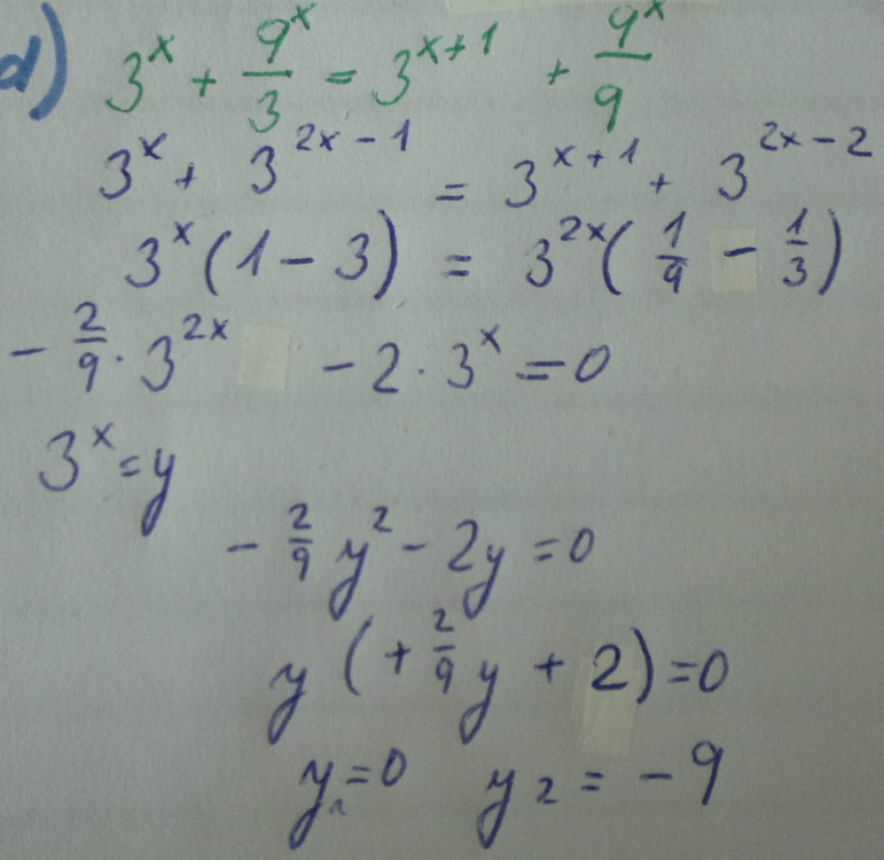 d) 3^x + 9^x/3 = 3^(x+1) + 9^x/9
3^x + 3^(2x-1) = 3^(x+1) + 3^(2x-2)
3^x (1 - 3) = 3^(2x) (1/9 - 1/3)
- 2/9 · 3^(2x) - 2 · 3^x = 0
3^x = y
- 2/9 y² - 2y = 0
y (+ 2/9 y + 2) = 0
y₁ = 0 y₂ = - 9